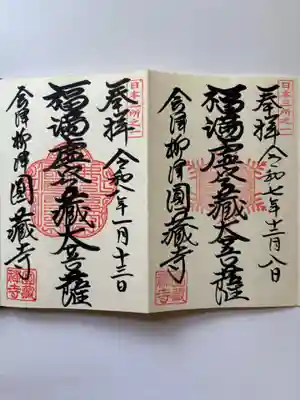 日本三所之一
奉拝 令和七年十二月八日
福満虚空藏大菩薩
会津柳津 圓藏寺
日本三所之一
奉拝 令和八年一月十三日
福満虚空藏大菩薩
会津柳津 圓藏寺